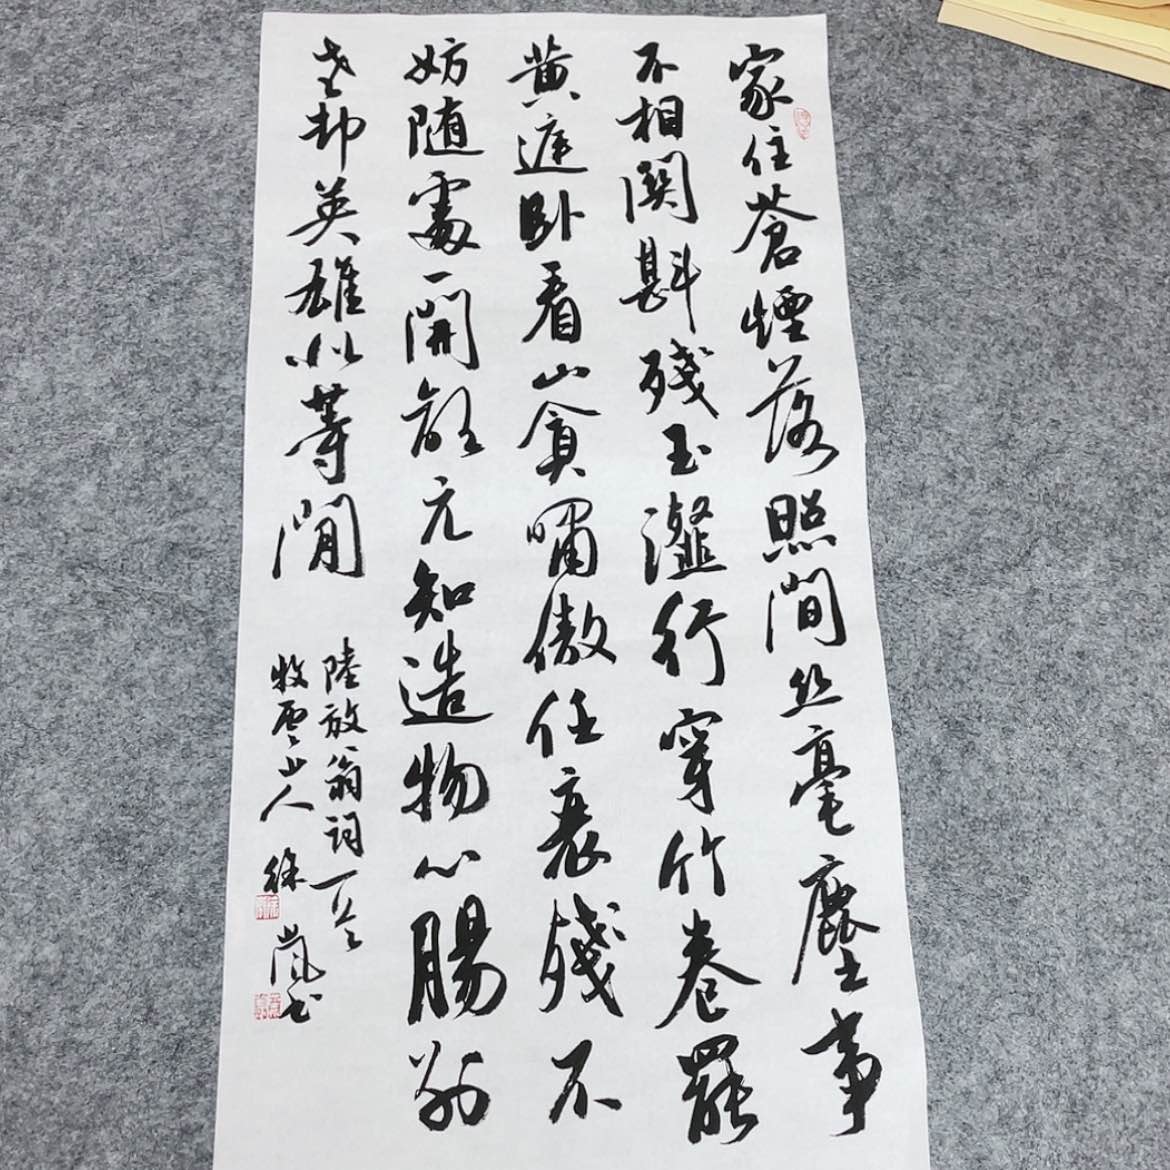 家住蒼煙落照間絲毫塵事
不相関斟殘玉瀣行穿竹卷罷
黄庭卧看山貪嘯傲任衰殘不
妨随處一開顔元知造物心腸别
老却英雄似等閒
陸放翁詞一首
牧雲山人徐嵐书